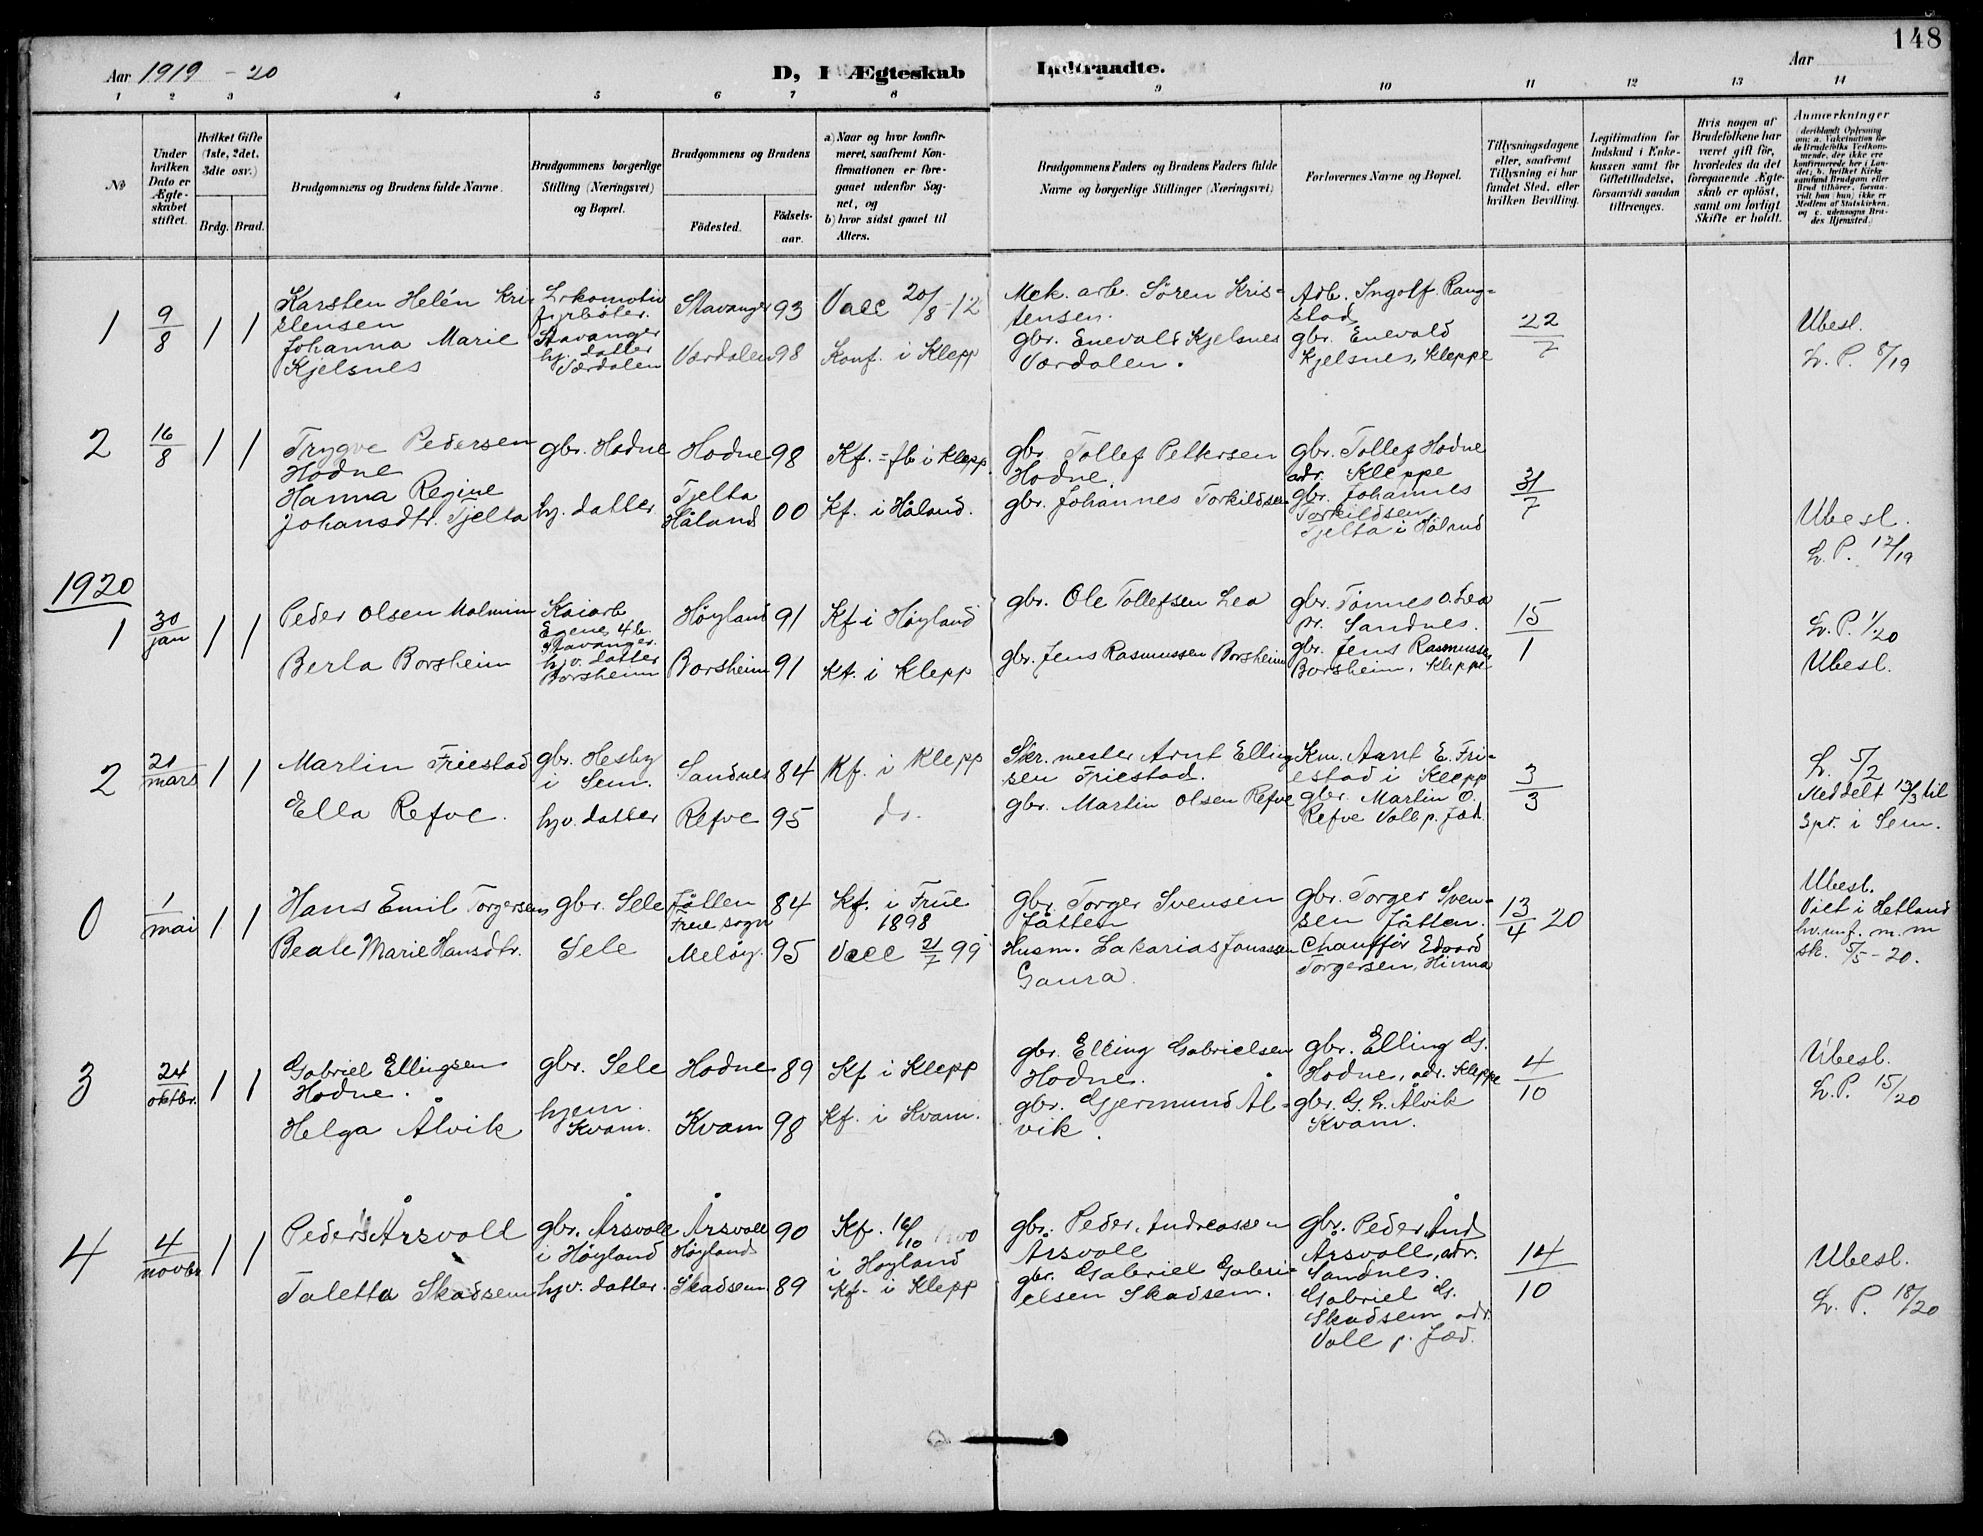 148
Aar 1919 - 20
D, I Ægteskab
Indtraadte.
Aar
1 2 3 4 5 6 7 8 9 10 11 12 13 14
No
Under hvilken Dato er Ægte-skabet stiftet.
Hvilket Gifte (1ste, 2det, 3die osv.)
Brdg. Brud.
Brudgommens og Brudens fulde Navne.
Brudgommens borgerlige Stilling (Næringsvei) og Bopæl.
Brudgommens og Brudens
Fødested.
Fødsels-aar.
a) Naar og hvor konfir-meret, saafremt Kon-firmationen er fore-gaaet udenfor Sog-net, og
b) hvor sidst gaaet til Alters.
Brudgommens Faders og Brudens Faders fulde Navne og borgerlige Stillinger (Næringsvei)
Forlovernes Navne og Bopæl.
Tillysningsdagene eller, saafremt Tillysning ei har fundet Sted, efter hvilken Bevilling.
Legitimation for Indskud i Enke-kassen samt for Giftetilladelse, forsaavidt saadan tiltrænges.
Hvis nogen af Brudefolkene har været gift før, hvorledes da det foregaaende Ægte-skab er opløst, samt om lovligt Skifte er holdt.
Anmerkninger
(deriblandt Oplysning om: a. Vakcination for de Brudefolks Vedkom-mende, der ikke ere konfirmerede her i Lan-det; b. hvilket Kirke samfund Brudgom eller Brud tilhører, forsaa-vidt han (hun) ikke er Medlem af Statskirken, og c. udensogns Bru-des Hjemsted.)
1 9/8 1 1
Karsten Helén Kris
stensen
Johanna Marie
Kjelsnes
Lokomotiv
fyrbøter.
Stavanger
hj. datter
Værdalen
Stavanger 93
Værdalen 98
Vall 20/8 - 12
Konf. i Klepp
Mek. arb. Sören Kris-
tensen.
gbr. Enevald Kjelsnes
Værdalen.
Arb. Ingolf. Rang-
stad
gbr. Enevald
Kjelsnes, Kleppe
22/7
Ubesl.
L. P. 8/19
2 16/8 1 1
Trygve Pedersen
Hodne
Hanna Regine
Johansdtr. Tjelta
gbr. Hodne
hj. datter
Hodne 98
Tjelta
Håland 00
Kf. = fb i Klepp.
Kf. i Håland.
gbr. Tollef Pettersen
Hodne.
gbr. Johannes Torkildsen
gbr. Tollef Hodne
adr. Kleppe
gbr. Johannes
Torkildsen
Tjelta i Håland
31/7
Ubesl.
L. P. 12/19
1920
1 30/jan 1 1
Peder Olsen Malmin
Berta Borsheim
Kaiarb
Egenes 4 b.
Stavanger.
hjv. datter
Borsheim
Høyland 91
Borsheim 91
Kf i Høyland
Kf. i Klepp
gbr. Ole Tollefsen Lea
gbr. Jens Rasmussen Borsheim
gbr. Tönnes O. Lea
pr. Sandnes.
gbr. Jens Rasmussen
Borsheim, Kleppe
15/1
L. P. 1/20
Ubesl.
2 20/mars 1 1
Martin Friestad
Ella Refve.
gbr. Hesby
i Sem.
hjv. datter
Sandnes 84
Refve 95
Kf. i Klepp
do.
Skr. mester Arnt Elling
sen Friestad.
gbr. Martin Olsen Refve
Km. Arnt E. Fri-
estad i Klepp
gbr. Martin O.
Refve Voll p. Jæd.
3/3
L. 5/2
Meddelt 13/3 til
Spr. i Sem.
0 1/mai 1 1
Hans Emil Torgersen
Beate Marie Hansdtr.
gbr. Sele
Sele
Jåtten
Frue sogn 84
Meløy. 95
Kf. i Frue
1898
Voll 21/7 99
gbr. Torger Svensen
Jåtten
Husm. Zakarias Jonassen
Gaura.
gbr. Torger Sven-
sen Jåtten.
Chauffør Edvard
Torgersen, Hinna
13/4 20
Ubesl.
Viet i Hetland
m. m
sk. 5/5 - 20.
3 24/oktbr. 1 1
Gabriel Ellingsen
Hodne.
Helga Ålvik
gbr. Sele
hjem.
Kvam.
Hodne 89
Kvam 98
Kf i Klepp
Kf. i Kvam.
gbr. Elling Gabrielsen
Hodne.
gbr. Gjermund Ål-
vik.
gbr. Elling G.
Hodne, adr. Kleppe
gbr. G. L. Ålvik
Kvam.
4/10
Ubesl.
L. P. 15/20
4 4/novbr 1 1
Peder Årsvoll
Taletta Skadsem
gbr. Årsvoll
i Høyland
hjv. datter.
Årsvoll
Høyland 90
Skadsem 89
Kf. 16/10
i Høyland
Kf. i Klepp
gbr. Peder Andreassen
Årsvoll
gbr. Gabriel Gabri-
elsen Skadsem.
gbr. Peder And
Årsvoll, adr.
Sandnes.
Gabriel G.
Skadsem adr.
Voll p. Jæd.
14/10
Ubesl.
L. P. 18/20